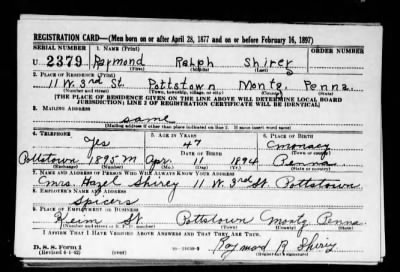 REGISTRATION CARD—(Men born on or after April 28, 1877 and on or before February 16, 1897)
SERIAL NUMBER 1. NAME (Print) ORDER NUMBER
U 2379 Raymond Ralph Shirey
(First) (Middle) (Last)
2. PLACE OF RESIDENCE (Print)
11 W. 3rd St. Pottstown Montg. Penna.
(Number and street) (Town, township, village, or city) (County) (State)
[THE PLACE OF RESIDENCE GIVEN ON THE LINE ABOVE WILL DETERMINE LOCAL BOARD
JURISDICTION; LINE 2 OF REGISTRATION CERTIFICATE WILL BE IDENTICAL]
3. MAILING ADDRESS
same
[Mailing address if other than place indicated on line 2. If same insert word same]
4. TELEPHONE 5. AGE IN YEARS 6. PLACE OF BIRTH
Yes 47 Monacy
DATE OF BIRTH (Town or county)
Pottstown 1895 M Apr. 11 1894 Penna
(Exchange) (Number) (Mo.) (Day) (Yr.) (State or country)
7. NAME AND ADDRESS OF PERSON WHO WILL ALWAYS KNOW YOUR ADDRESS
Mrs. Hazel Shirey 11 W. 3rd St. Pottstown
8. EMPLOYER'S NAME AND ADDRESS
Spicers
9. PLACE OF EMPLOYMENT OR BUSINESS
Keim St. Pottstown Montg Penna
(Number and street or R. F. D. number) (Town) (County) (State)
I AFFIRM THAT I HAVE VERIFIED ABOVE ANSWERS AND THAT THEY ARE TRUE.
D. S. S. Form 1
(Revised 4-1-42) (over) Raymond R Shirey
(Registrant's signature)